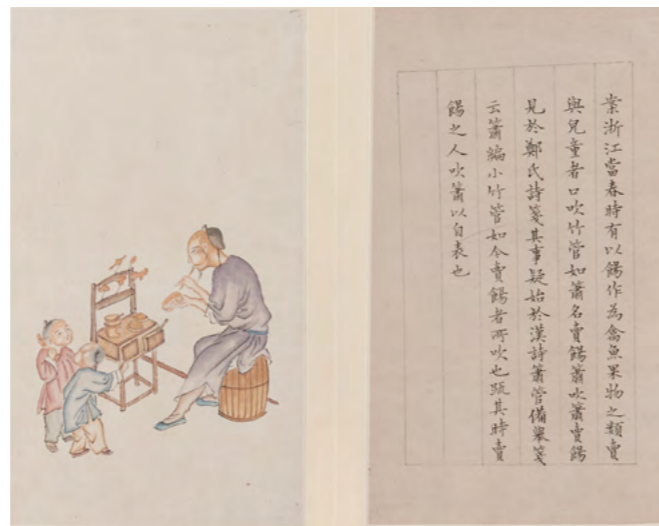 案浙江當春時有以餳作為禽魚果物之類賣
與兒童者口吹竹管如簫名賣餳簫吹簫賣餳
見於鄭氏詩箋其事疑始於漢詩簫管備舉箋
云簫編小竹管如今賣餳者所吹也蹠其時賣
餳之人吹簫以自表也